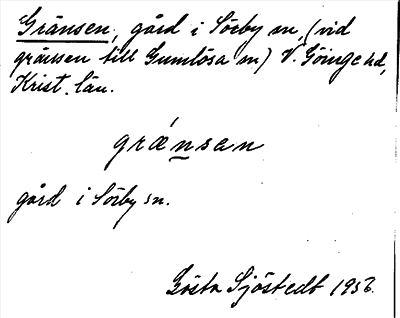 Gränsen, gård i Sörby sn, (vid
gränsen till Gumlösa sn) V. Göinge hd,
Krist. län.
grǽnsan
gård i Sörby sn.
Gösta Sjöstedt 1956.